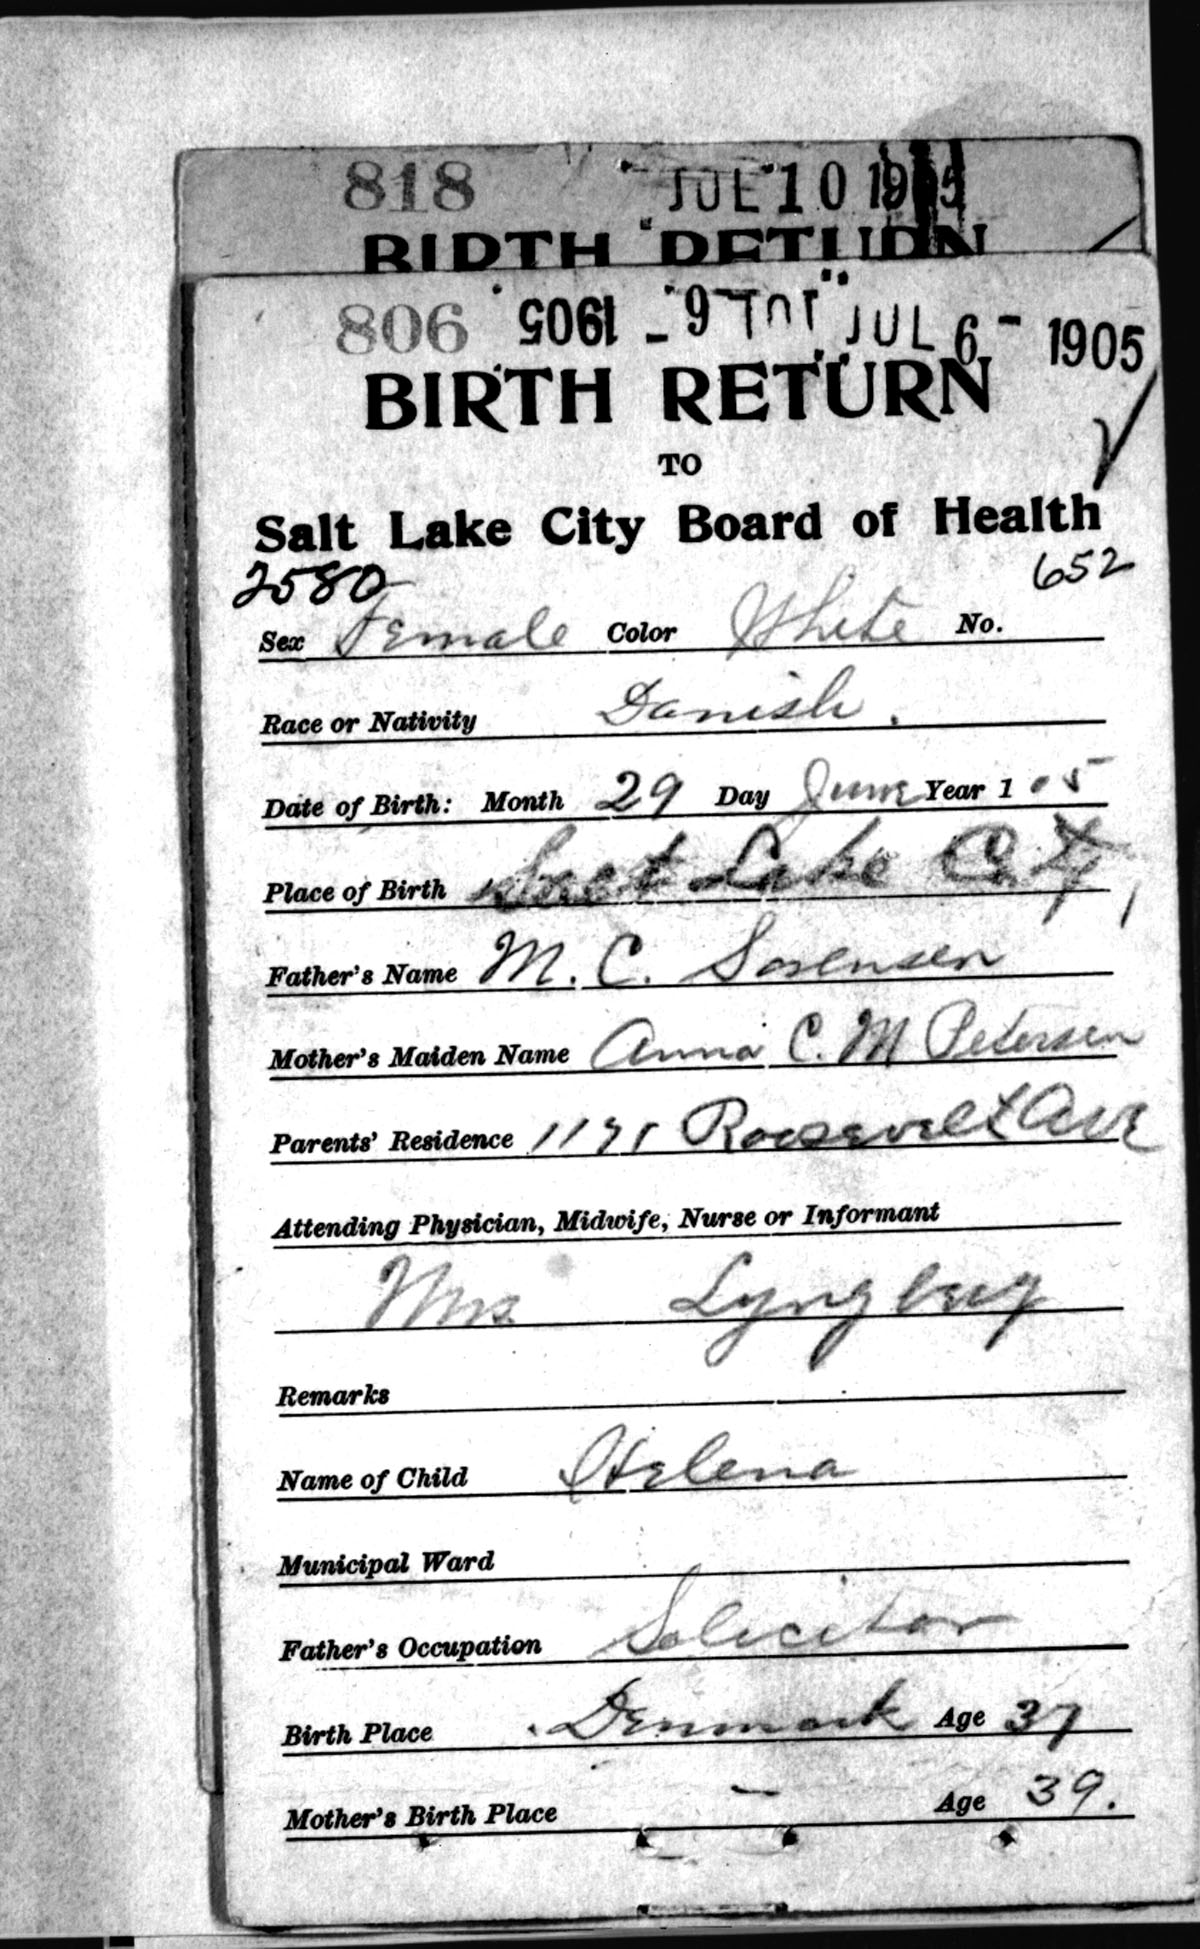 818 JUL 10 1905
BIRTH RETURN
806 1905 - 6 JUL JUL 6 - 1905
BIRTH RETURN
TO
Salt Lake City Board of Health
2580 652
Sex Female Color White No.
Race or Nativity Danish.
Date of Birth: Month 29 Day June Year 1 05
Place of Birth Salt Lake City
Father's Name M. C. Sorensen
Mother's Maiden Name Anna C. M Petersen
Parents' Residence 1171 Roosevelt Ave
Attending Physician, Midwife, Nurse or Informant
Mrs Lyngbuy
Remarks
Name of Child Helena
Municipal Ward
Father's Occupation Solicitor
Birth Place Denmark Age 37
Mother's Birth Place — Age 39.